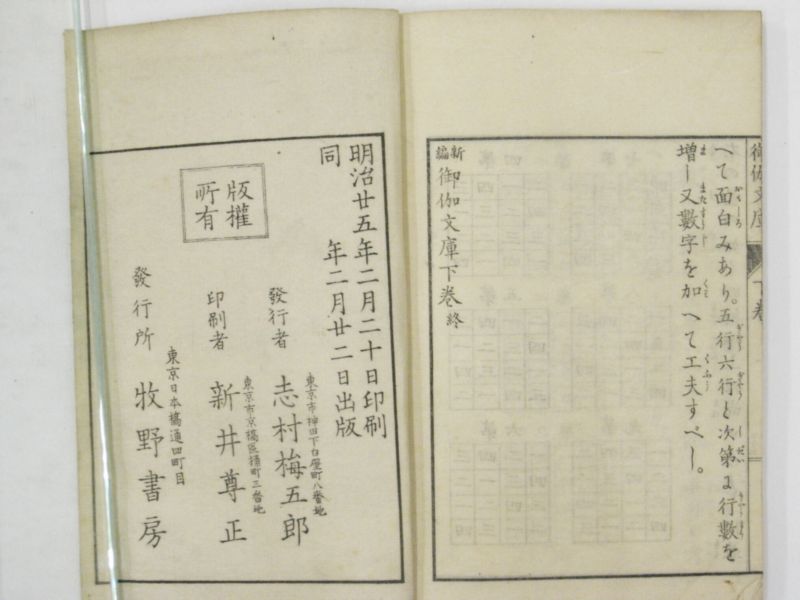 御伽文庫 下巻
へて面白みあり。五行六行と次第に行數を
増し又數字を加へて工夫すべし。
新編 御伽文庫下巻 終
明治廿五年二月二十日印刷
同 年二月廿二日出版
版權
所有
發行者 志村梅五郎
東京市神田下白壁町八番地
印刷者 新井尊正
東京市京橋區桶町三番地
發行所 牧野書房
東京日本橋通四町目